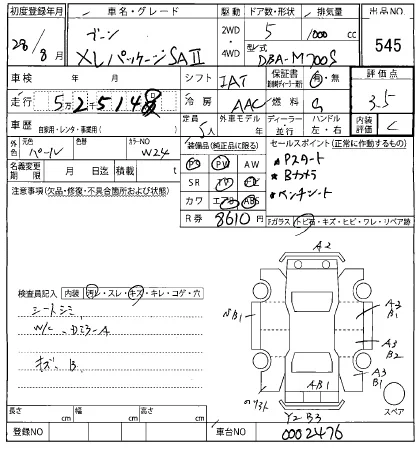 初度登録年月 車名・グレード 駆動 ドア数・形状 排気量 出品NO
28/8月 ブーン 2WD 4WD 5 1000 cc 545
XLパッケージSAⅡ 型式 DBA-M700S
車検 年 月 シフト IAT 保証書 有・無 評価点
走行 5万2千514 冷房 AAC 燃料 G 3.5
車歴 自家用・レンタ・事業用( ) 定員 5人 外車モデル 年 ディーラー・並行 ハンドル 左・右 内装評価 C
外色 元色 パール 色替 カラーNO W24 装備品(純正品に限る) セールスポイント(正常に作動するもの)
名義変更期限 月 日迄 積載 t PS PW AW *Pスタート
注意事項(欠品・修復・不具合箇所および状態) SR TV *Bカメラ
カワ エアB ABS *ベンチシート
R券 8610円 Fガラス トビ石・キズ・ヒビ・ワレ・リペア跡
A2
検査員記入 内装 汚レ・スレ・キズ・キレ・コゲ・穴
シートシミ B1 A3 B1
W/C
A3 B2
キズ B A3 B1
AB1
スペア
長さ cm 幅 cm 高さ cm Y2 B3
登録NO 車台NO 0002476